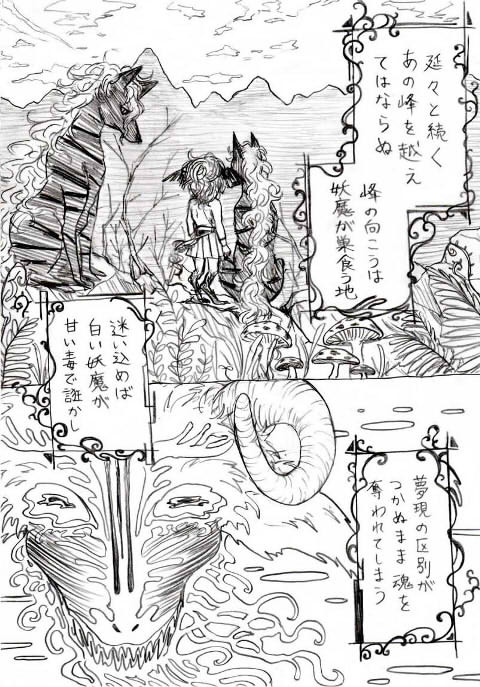 延々と続く
あの峰を越え
てはならぬ
峰の向こうは
妖魔が巣食う地
迷い込めば
白い妖魔が
甘い毒で誑かし
夢現の区別が
つかぬまま魂を
奪われてしまう